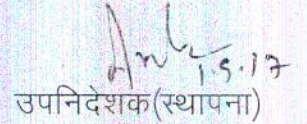 1.5.17
उपनिदेशक(स्थापना)